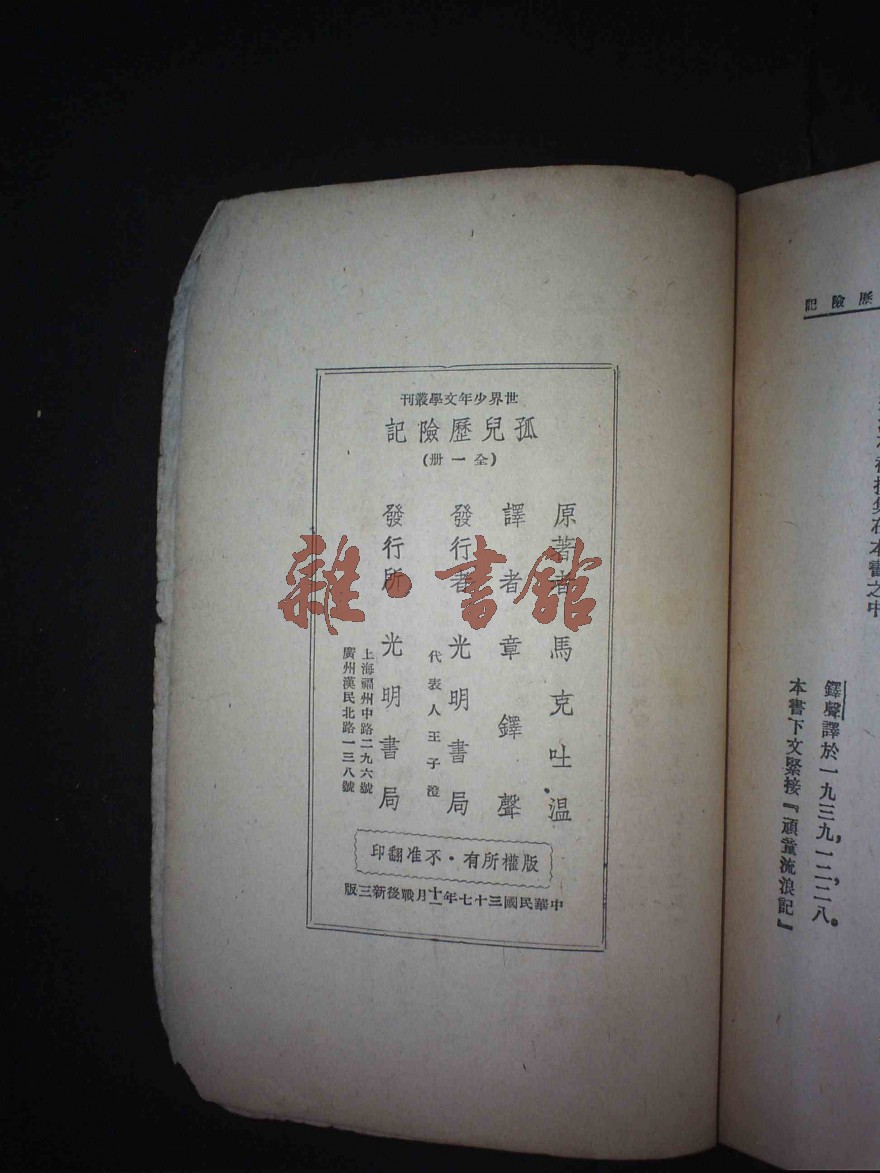 世界少年文學叢刊
孤兒歷險記
(全一册)
原著者 馬克·吐温
譯者 章鐸聲
發行者 光明書局
代表人王子澄
發行所 光明書局
上海福州中路二九六號
廣州漢民北路一三八號
版權所有·不准翻印
中華民國三十七年十一月戰後新三版
雜·書館
歷險記
在本書之中
鐸聲譯於一九三九，一二，二八。
本書下文緊接『頑童流浪記』